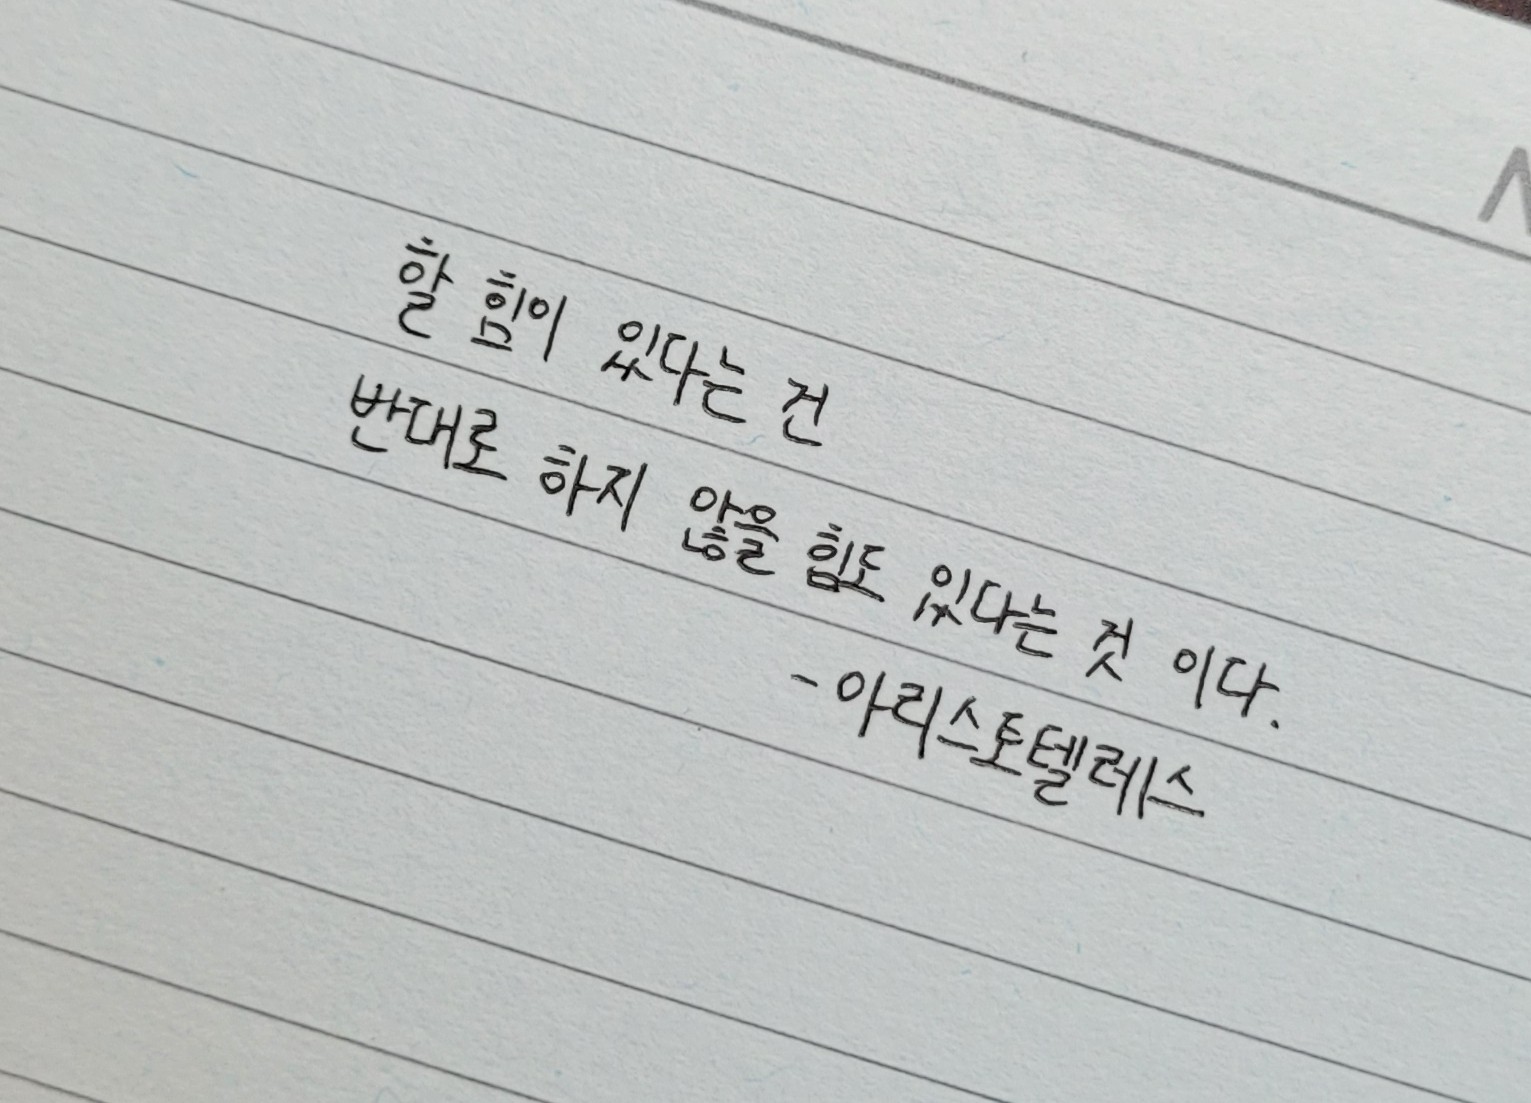 할 힘이 있다는 건
반대로 하지 않을 힘도 있다는 것 이다.
- 아리스토텔레스